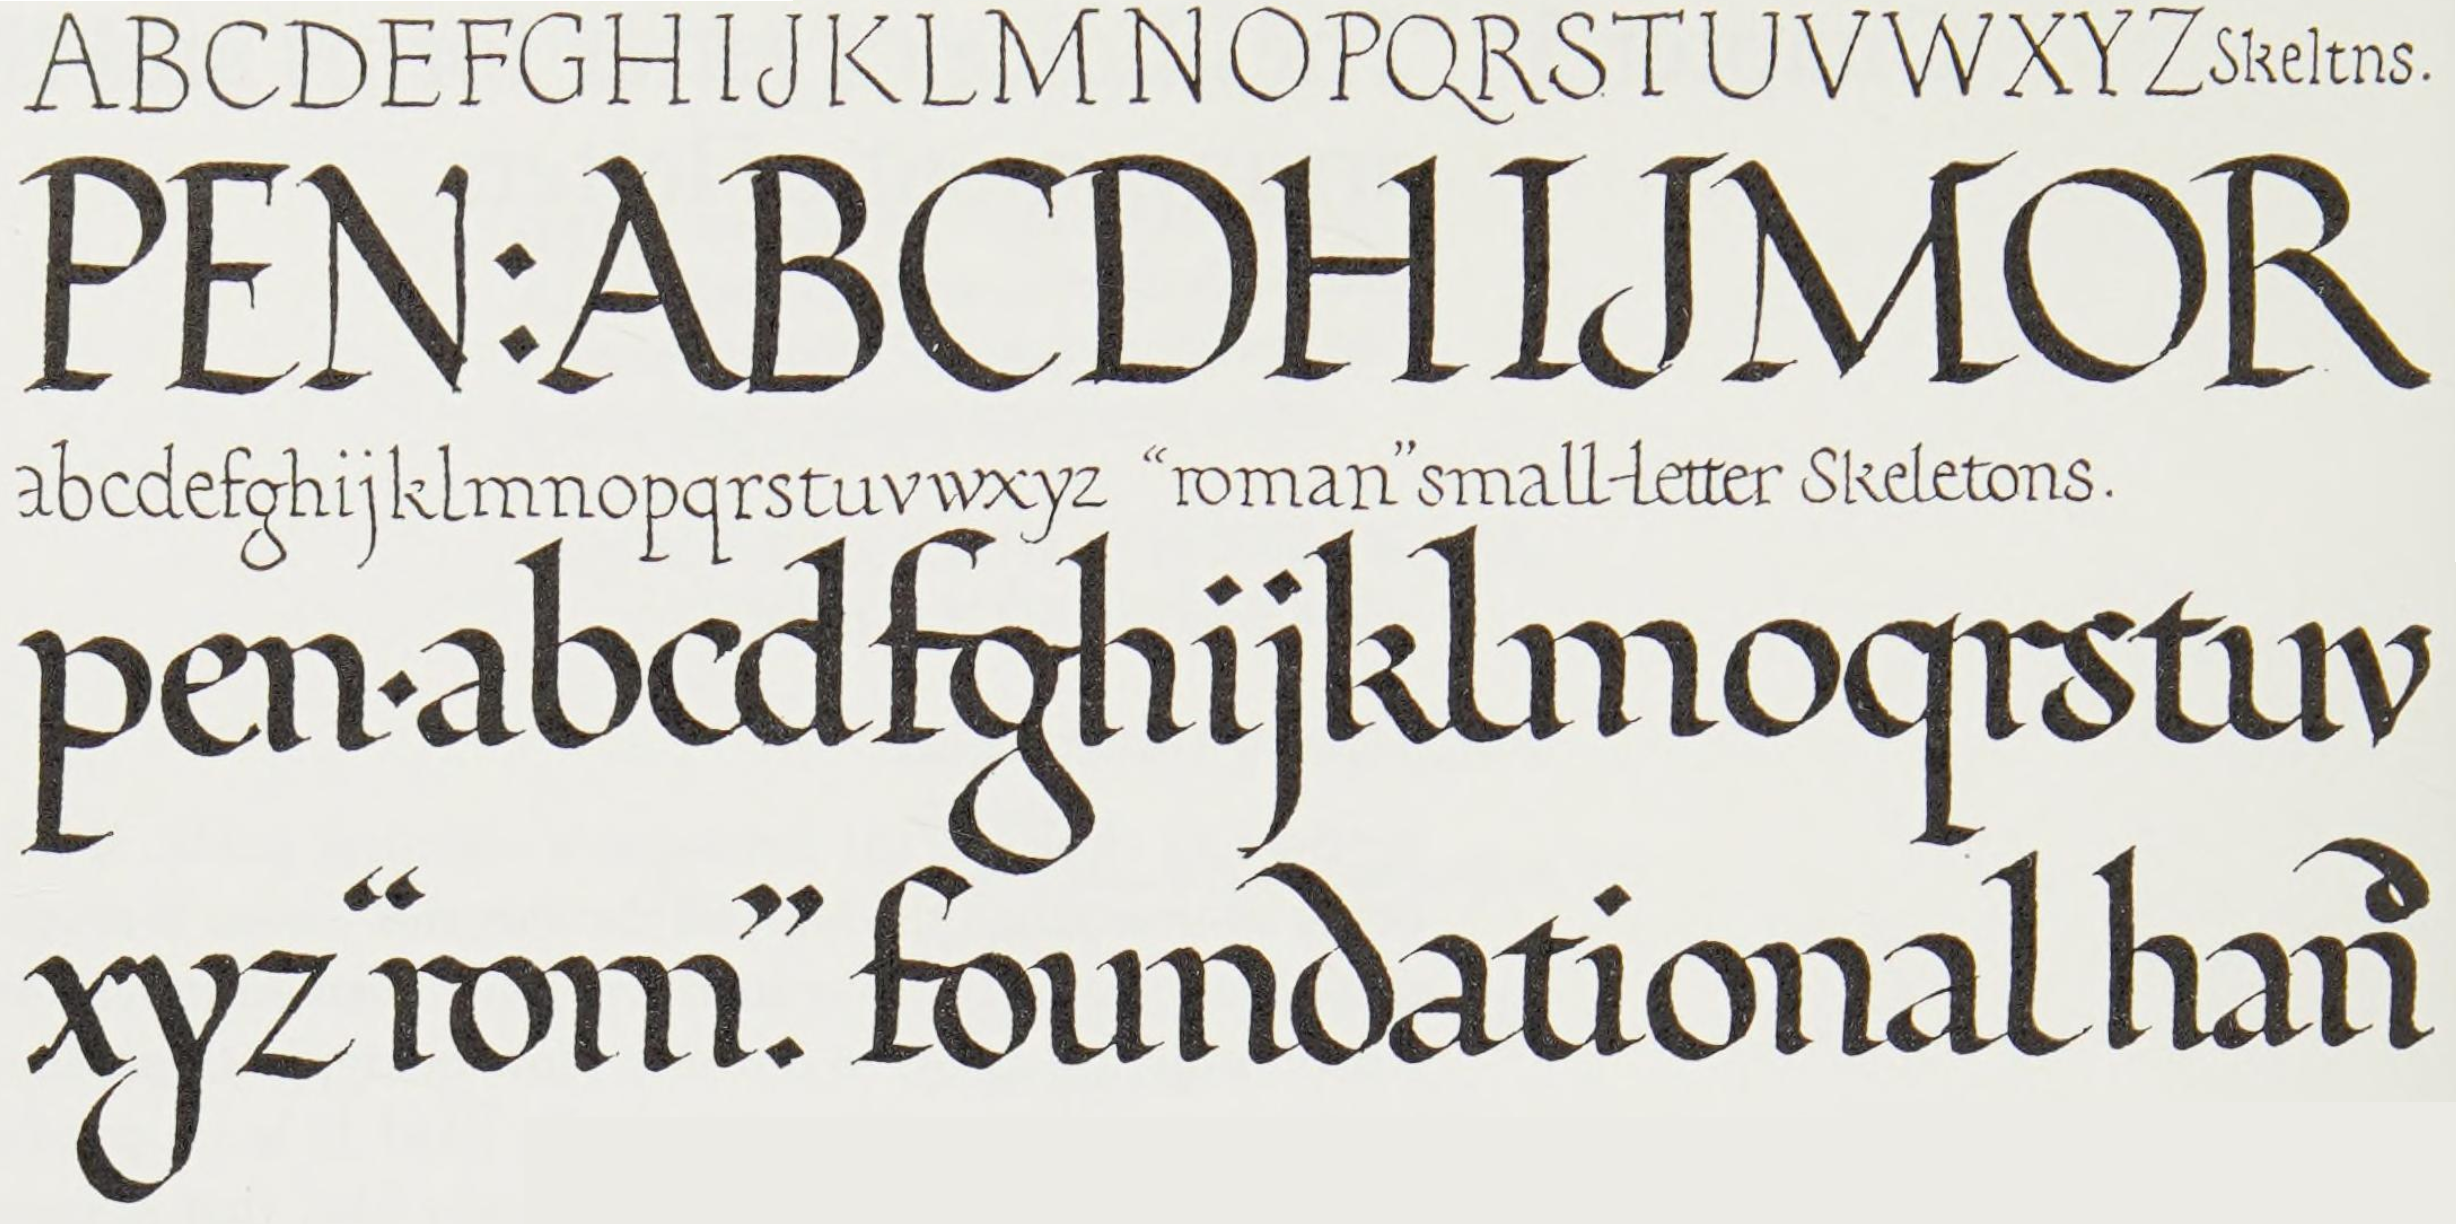 ABCDEFGHIJKLMNOPQRSTUVWXYZ Skeltns.
PEN: ABCDHIJMOR
abcdefghijklmnopqrstuvwxyz “roman” small-letter Skeletons.
pen·abcdfghijklmoqrstuv
xyz “rom.” foundational hand